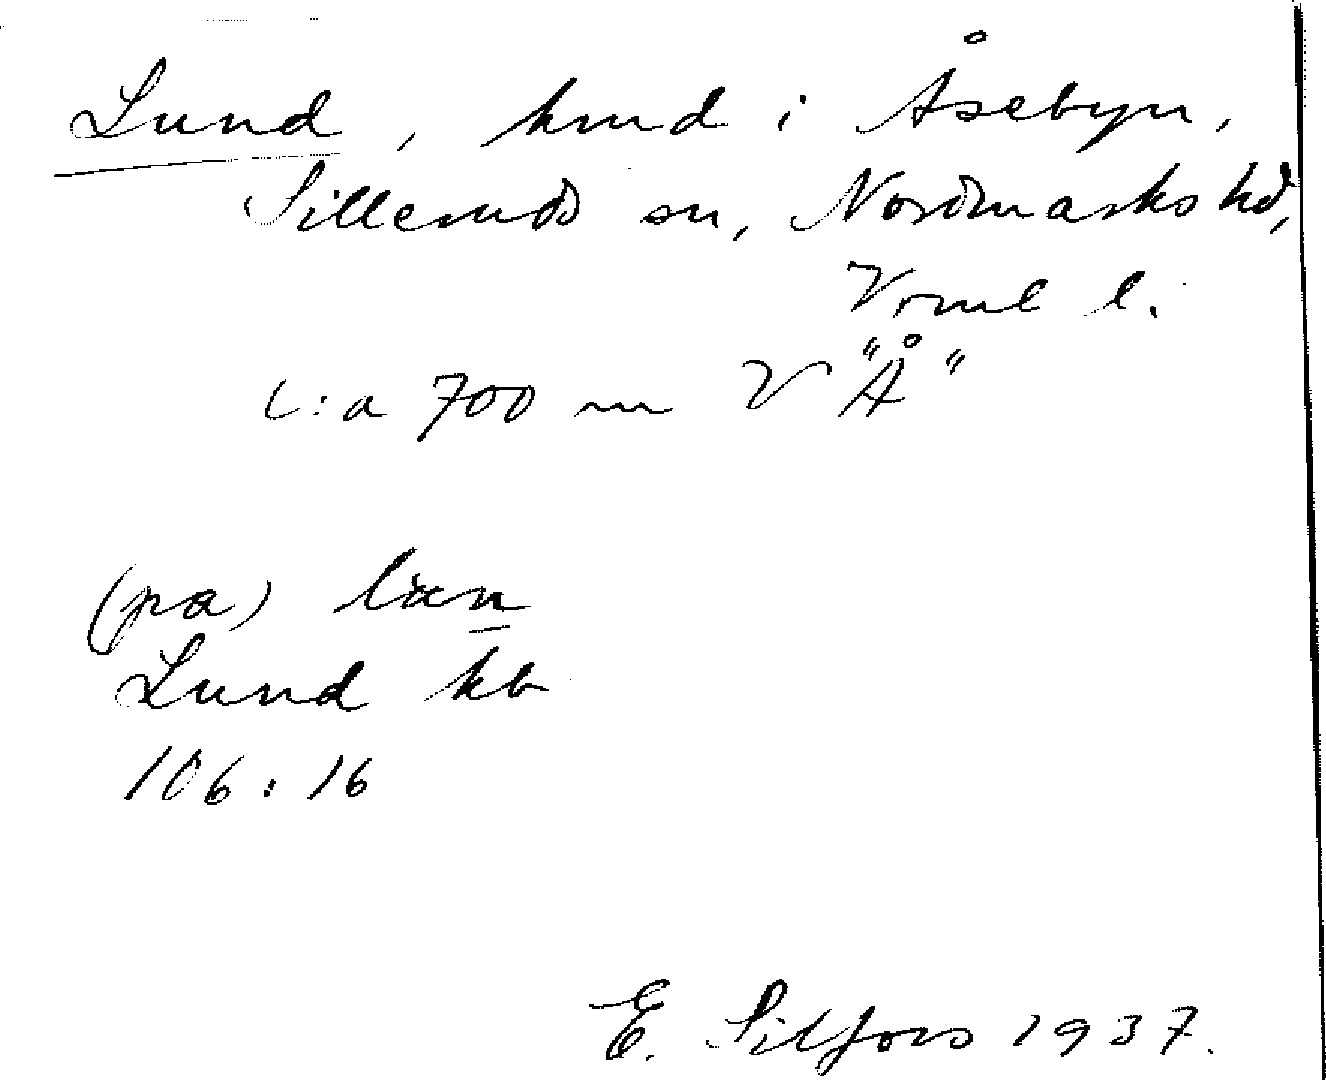 Lund, hmd i Åsebyn,
Silleruds sn, Nordmarks hd,
Vrml l.
c:a 700 m V "Å"
(pa)
Lund kb
106:16
E. Silfors 1937.